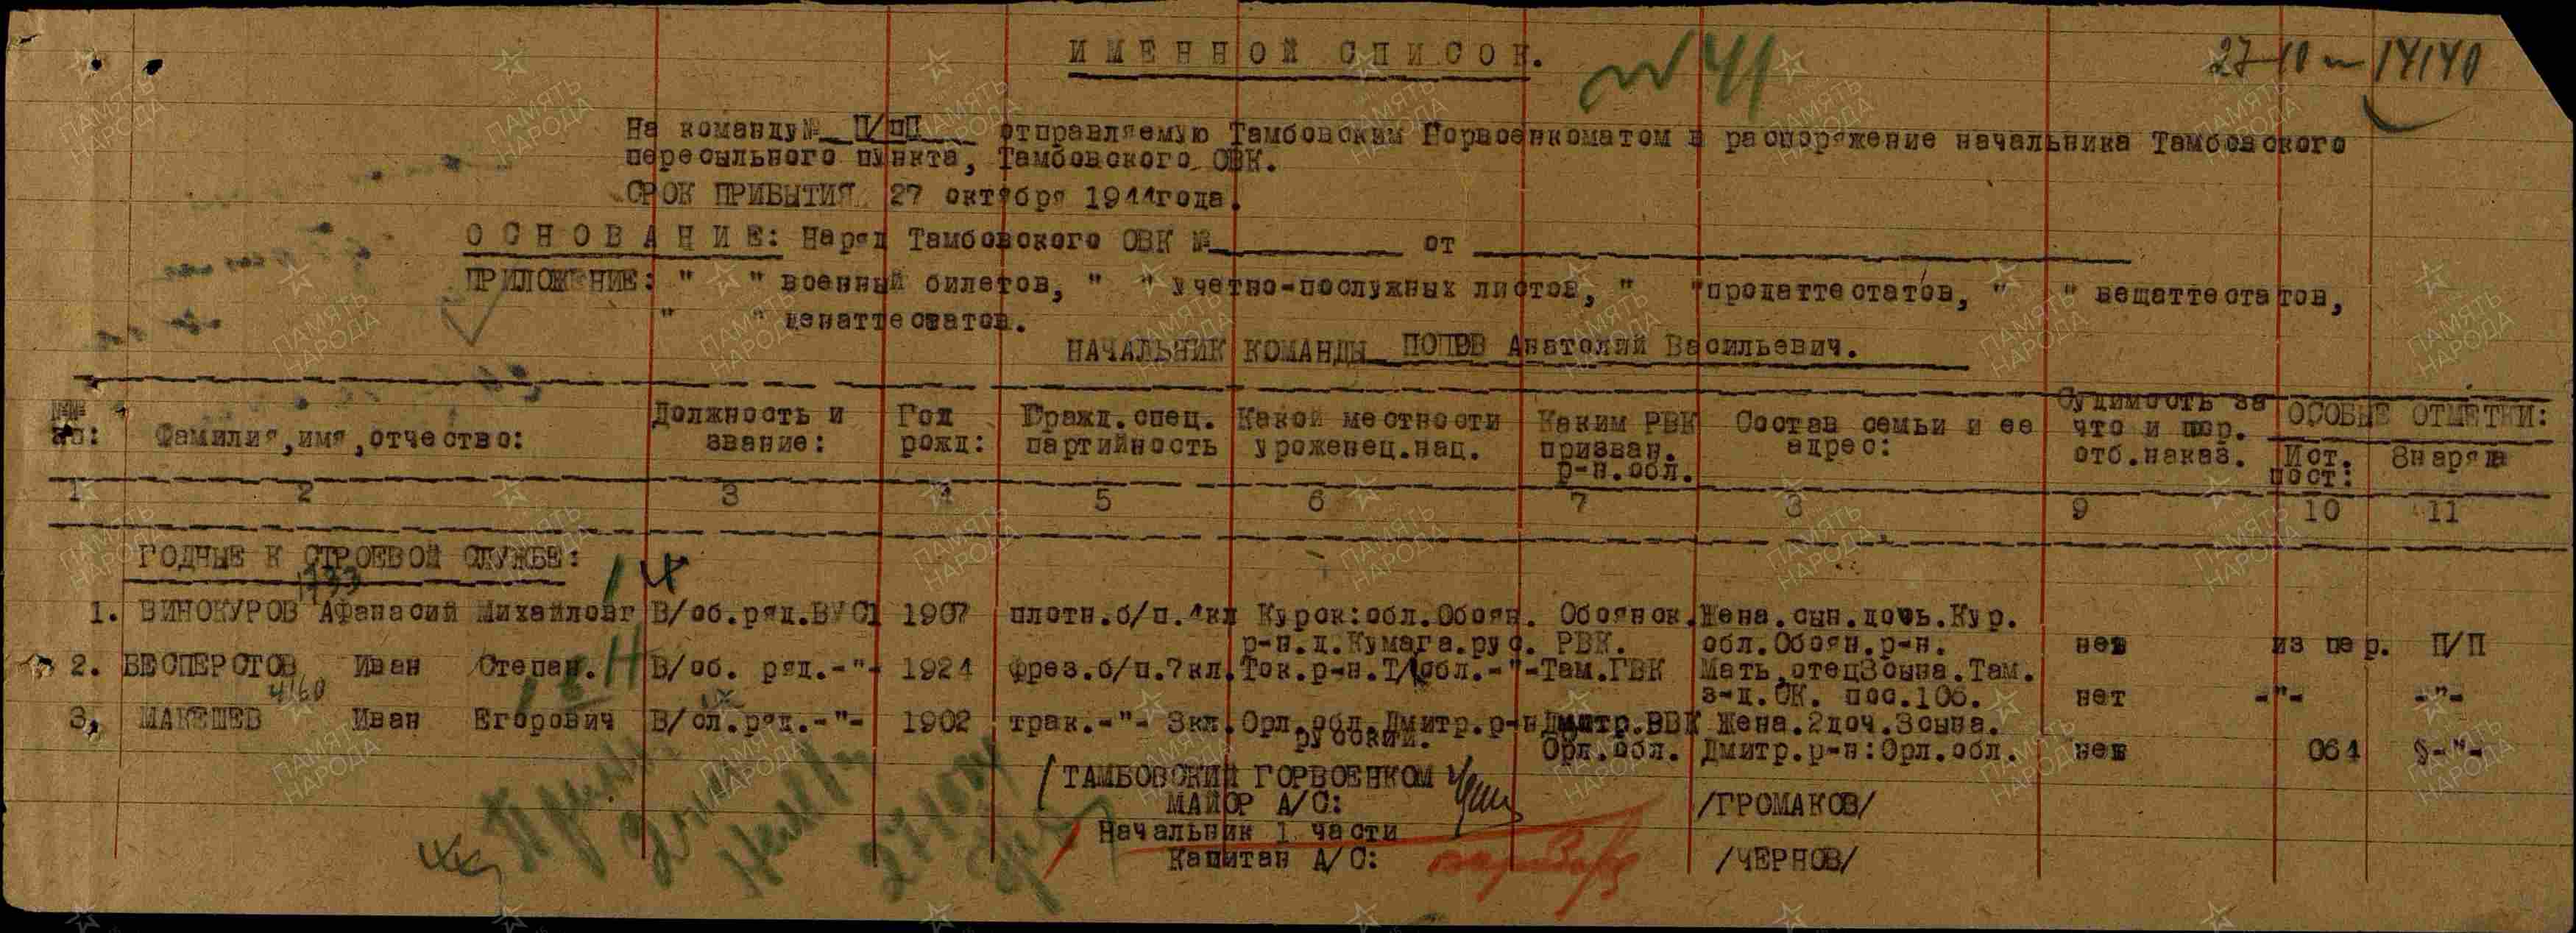 ИМЕННОЙ СПИСОК.
№ 41
27-10 14140
На команду № П/пП отправляемую Тамбовским Горвоенкоматом в распоряжение начальника Тамбовского
пересыльного пункта, Тамбовского ОВК.
СРОК ПРИБЫТИЯ 27 октября 1944года.
ОСНОВАНИЕ: Наряд Тамбовского ОВК № от
ПРИЛОЖЕНИЕ: " " военный билетов, " " учетно-послужных листов, " "продаттестатов, " " вещаттестатов,
" " денаттестатов.
НАЧАЛЬНИК КОМАНДЫ ПОПОВ Анатолий Васильевич.
№№ пп: Фамилия,имя,отчество: Должность и звание: Год рожд: Гражд.спец. партийность Какой местности уроженец.нац. Каким РВК призван. р-н.обл. Состав семьи и ее адрес: Судимость за что и пор. отб.наказ. ОСОБЫЕ ОТМЕТКИ: Ист. пост: §наряда
1 2 3 4 5 6 7 8 9 10 11
ГОДНЫЕ К СТРОЕВОЙ СЛУЖБЕ:
1. ВИНОКУРОВ Афанасий Михайловг В/об.ряд.ВУС1 1907 плотн.б/п.4кл Курск:обл.Обоян. Обоянск. Жена.сын.дочь.Кур.
р-н.д.Кумага.рус. РВК. обл.Обоян.р-н. нет из пер. П/П
2. БЕСПЕРСТОВ Иван Степан. В/об. ряд.-"- 1924 фрез.б/п.7кл. Ток.р-н.Т/обл.-"-Там.ГВК Мать,отец3сына.Там.
4160 з-д.ОК. пос.106. нет -"- -"-
3, МАКЕШЕВ Иван Егорович В/сл.ряд.-"- 1902 трак.-"- 3кл. Орл.обл.Дмитр.р-н Дмитр.РВК Жена.2доч.3сына.
русский. Орл.обл. Дмитр.р-н:Орл.обл. нет 064 §-"-
/ТАМБОВСКИЙ ГОРВОЕНКОМ
МАЙОР А/С: /ГРОМАКОВ/
Начальник 1 части
Капитан А/С: /ЧЕРНОВ/
ПАМЯТЬ НАРОДА